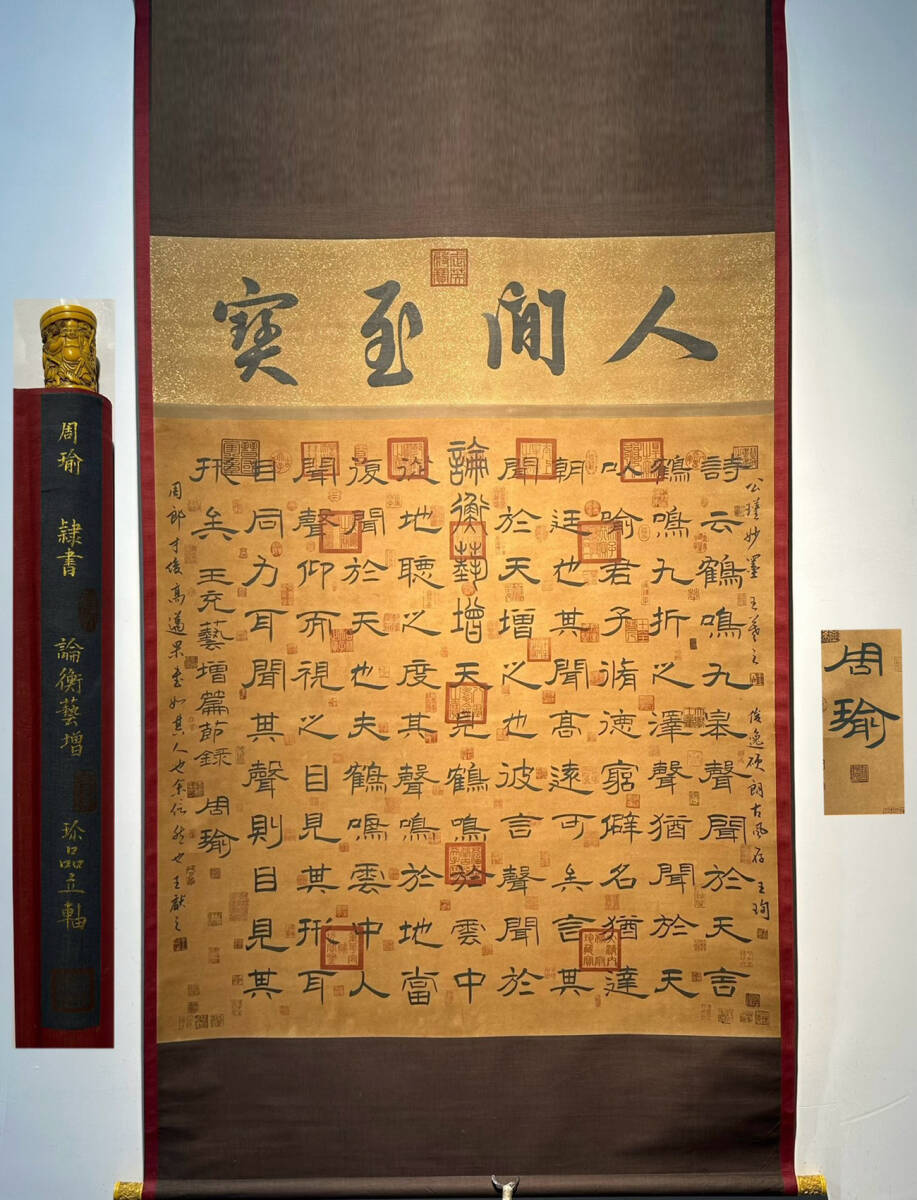 人間至寶
公瑾妙墨 王羲之 俊逸硕朗古風存 王珣
詩云鶴鳴九皋聲聞於天言
鶴鳴九折之澤聲猶聞於天
以喻君子脩德窮僻名猶達
朝廷也其聞高遠可矣言其
聞於天增之也彼言聲聞於
論衡藝增天見鶴鳴於雲中
從地聽之度其聲鳴於地當
復聞於天也夫鶴鳴雲中人
聞聲仰而視之目見其形耳
目同力耳聞其聲則目見其
形矣 王充藝增篇節録 周瑜
周郎才俊高邁果書如其人也余信然也王獻之
周瑜 隸書 論衡藝增 珍品立軸
周瑜